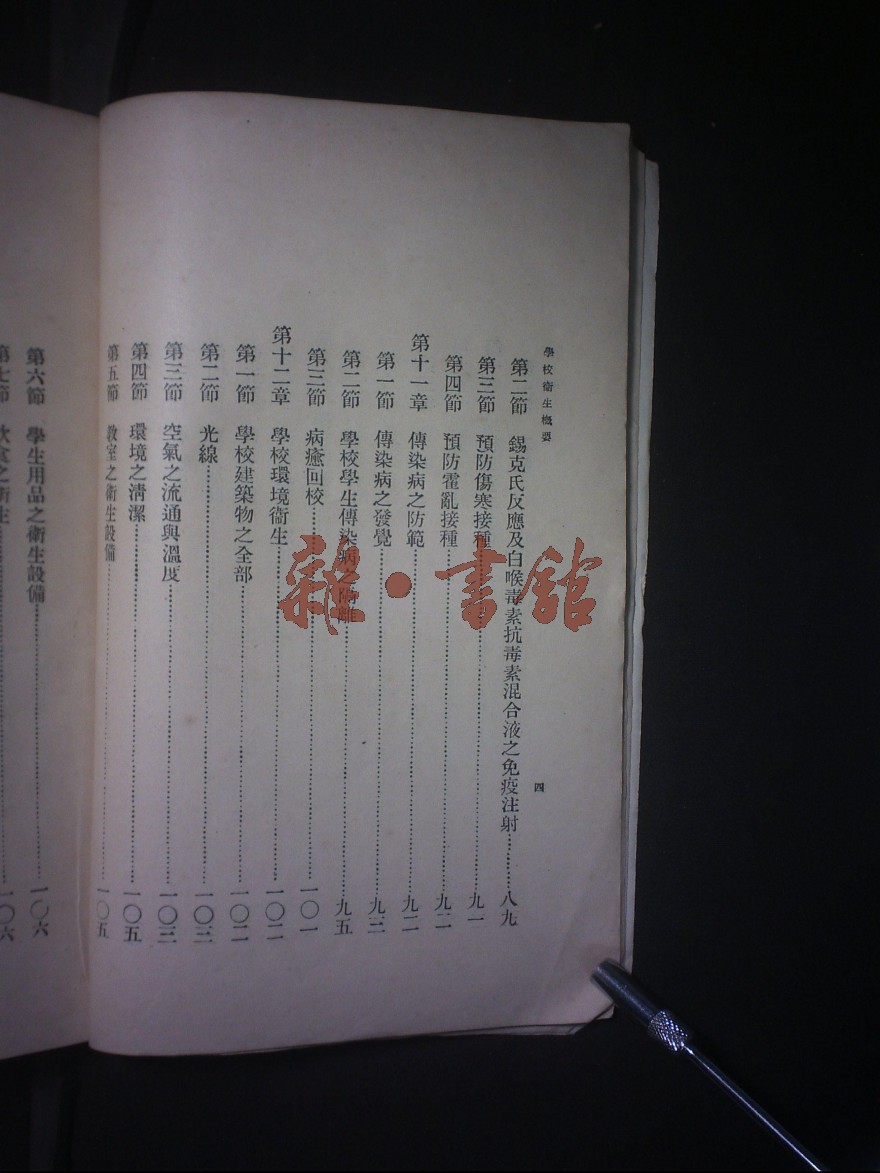 學校衞生概要
四
第二節 錫克氏反應及白喉毒素抗毒素混合液之免疫注射 八九
第三節 預防傷寒接種 九一
第四節 預防霍亂接種 九二
第十一章 傳染病之防範 九二
第一節 傳染病之發覺 九三
第二節 學校學生傳染病之隔離 九五
第三節 病癒回校 一〇一
第十二章 學校環境衞生 一〇二
第一節 學校建築物之全部 一〇二
第二節 光線 一〇三
第三節 空氣之流通與溫度 一〇三
第四節 環境之淸潔 一〇五
第五節 敎室之衞生設備 一〇五
第六節 學生用品之衞生設備 一〇六
第七節 飲食之衞生 一〇六
雜·書館